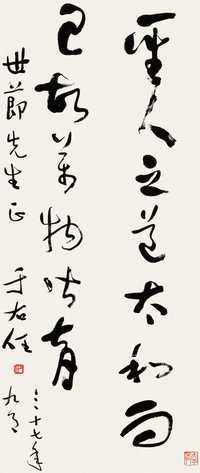 聖人之道太和而
已故萬物皆育
世節先生正
于右任
三十七年
九月